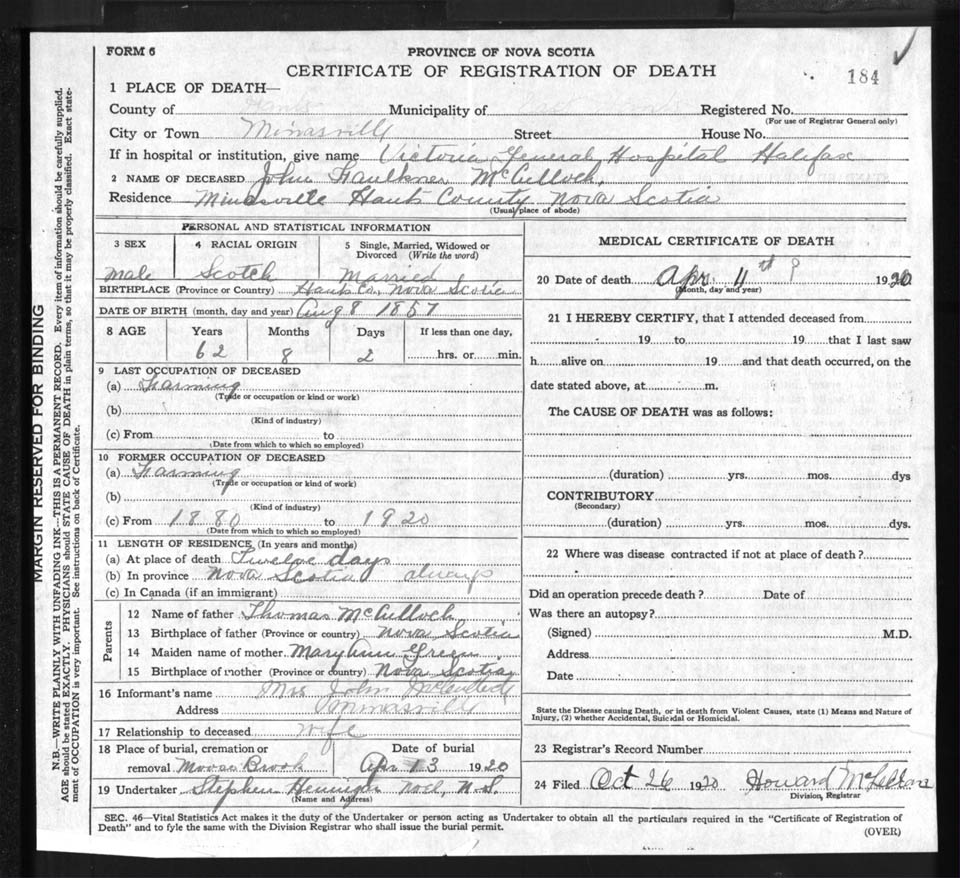 FORM 6
PROVINCE OF NOVA SCOTIA
CERTIFICATE OF REGISTRATION OF DEATH
184
1 PLACE OF DEATH—
County of Hants Municipality of Registered No.
(For use of Registrar General only)
City or Town Minasville Street House No.
If in hospital or institution, give name Victoria General Hospital Halifax
2 NAME OF DECEASED John Faulkner McCulloch,
Residence Minasville Hants County Nova Scotia
(Usual place of abode)
PERSONAL AND STATISTICAL INFORMATION
3 SEX 4 RACIAL ORIGIN 5 Single, Married, Widowed or Divorced (Write the word)
Male Scotch Married
BIRTHPLACE (Province or Country) Hants Co, Nova Scotia
DATE OF BIRTH (month, day and year) Aug 8 1857
8 AGE Years Months Days If less than one day,
62 8 2 hrs. or min.
9 LAST OCCUPATION OF DECEASED
(a) Farming
(Trade or occupation or kind or work)
(b)
(Kind of industry)
(c) From to
(Date from which to which so employed)
10 FORMER OCCUPATION OF DECEASED
(a) Farming
(Trade or occupation or kind of work)
(b)
(Kind of industry)
(c) From 1880 to 1920
(Date from which to which so employed)
11 LENGTH OF RESIDENCE (In years and months)
(a) At place of death Twelve days
(b) In province Nova Scotia always
(c) In Canada (if an immigrant)
Parents
12 Name of father Thomas McCulloch
13 Birthplace of father (Province or country) Nova Scotia
14 Maiden name of mother Mary Ann Green
15 Birthplace of mother (Province or country) Nova Scotia
16 Informant's name Mrs John McCulloch
Address Minasville
17 Relationship to deceased wife
18 Place of burial, cremation or removal Moose Brook Date of burial Apr 13 1920
19 Undertaker Stephen Hennigar Noel, N.S.
(Name and Address)
MEDICAL CERTIFICATE OF DEATH
20 Date of death Apr. 11th 1920
(Month, day and year)
21 I HEREBY CERTIFY, that I attended deceased from
19 to 19 that I last saw
h alive on 19 and that death occurred, on the
date stated above, at m.
The CAUSE OF DEATH was as follows:
(duration) yrs. mos. dys
CONTRIBUTORY
(Secondary)
(duration) yrs. mos. dys.
22 Where was disease contracted if not at place of death?
Did an operation precede death? Date of
Was there an autopsy?
(Signed) M.D.
Address
Date
State the Disease causing Death, or in death from Violent Causes, state (1) Means and Nature of
Injury, (2) whether Accidental, Suicidal or Homicidal.
23 Registrar's Record Number
24 Filed Oct 26 1920 Howard McLellan
Division, Registrar
SEC. 46—Vital Statistics Act makes it the duty of the Undertaker or person acting as Undertaker to obtain all the particulars required in the "Certificate of Registration of
Death" and to fyle the same with the Division Registrar who shall issue the burial permit.
(OVER)
MARGIN RESERVED FOR BINDING
N.B.—WRITE PLAINLY WITH UNFADING INK—THIS IS A PERMANENT RECORD. Every item of information should be carefully supplied.
AGE should be stated EXACTLY. PHYSICIANS should STATE CAUSE OF DEATH in plain terms, so that it may be properly classified. Exact state-
ment of OCCUPATION is very important. See instructions on back of Certificate.